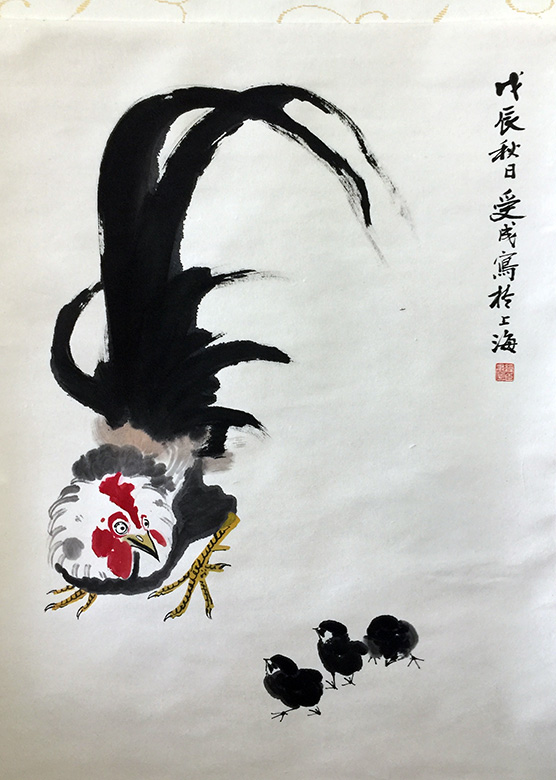 戊辰秋日受成寫於上海